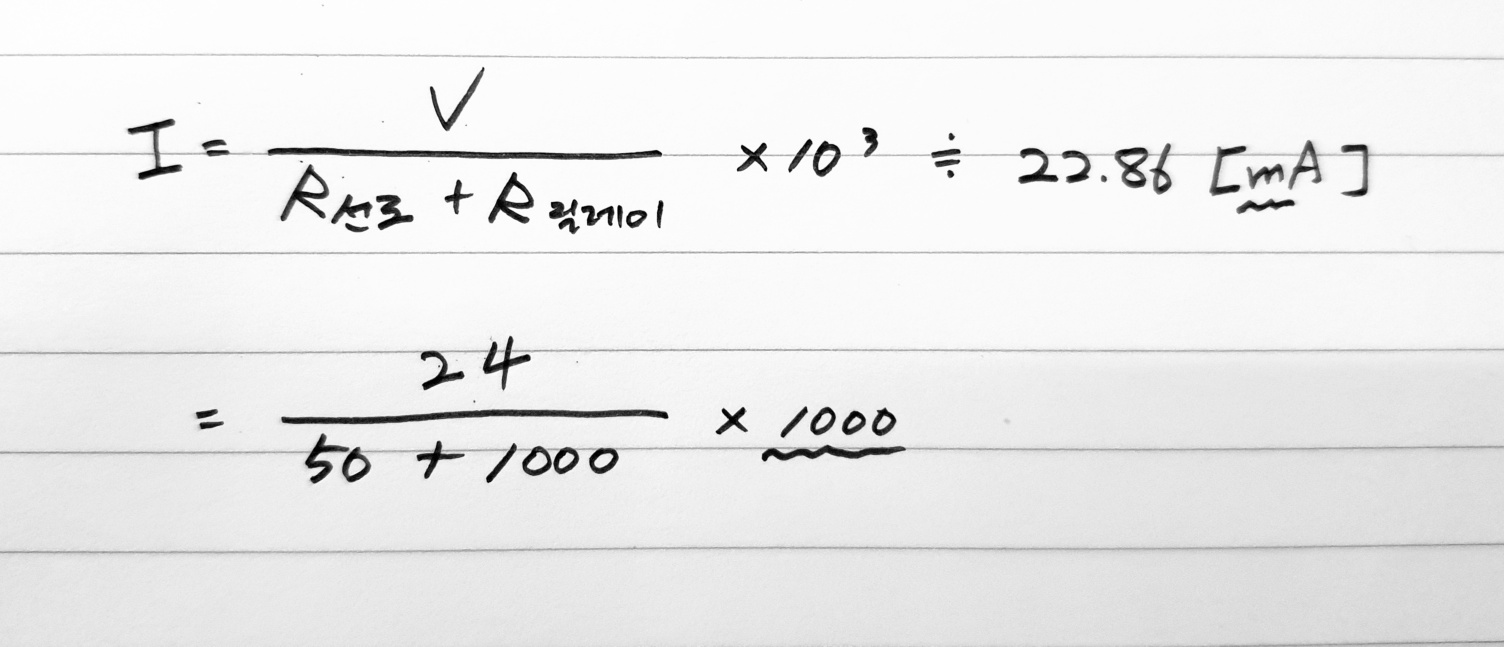 I = V / (R선로 + R릴레이) × 10³ ≑ 22.86 [mA]
= 24 / (50 + 1000) × 1000